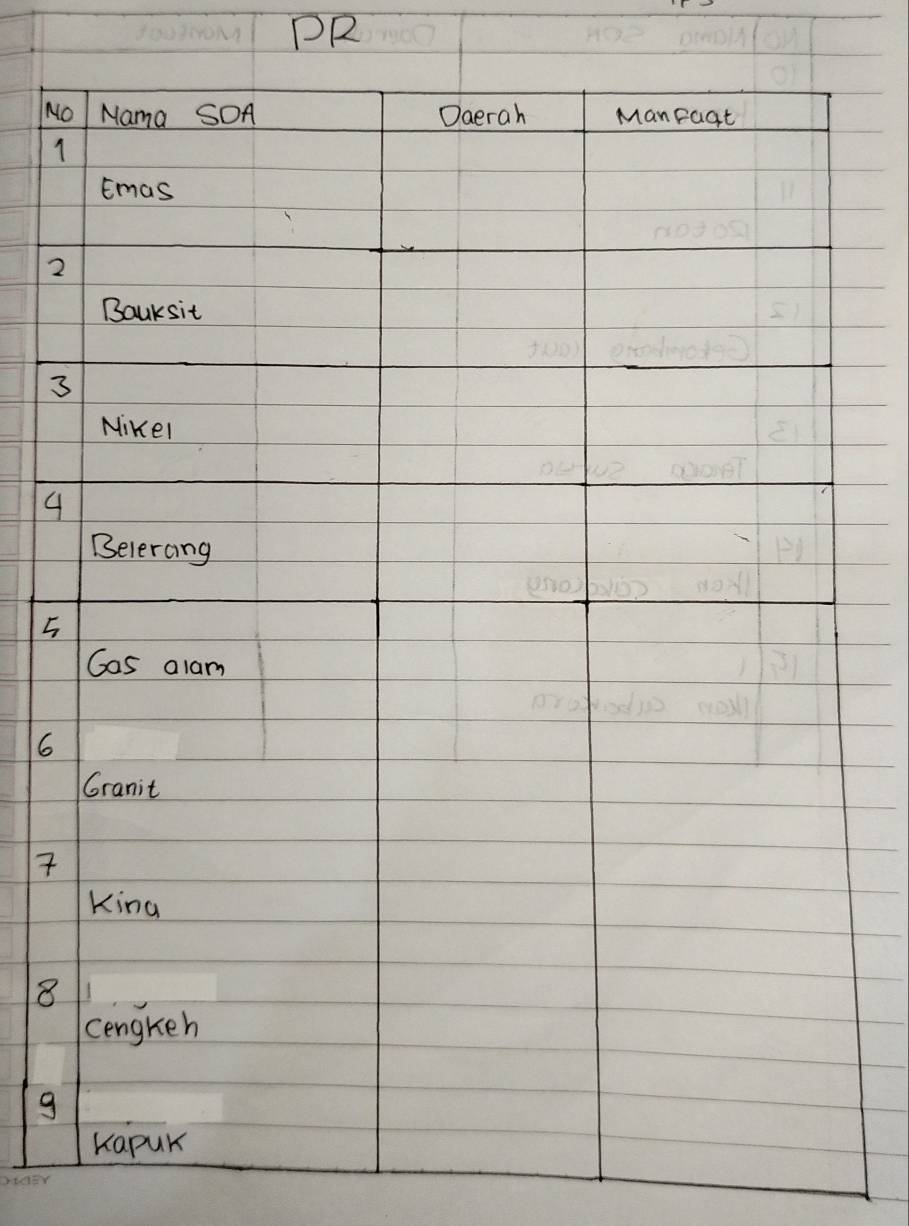 PR
No Nama SDA Daerah Manfaat
1
Emas
2
Bauksit
3
Nikel
4
Belerang
5
Gas alam
6
Granit
7
Kina
8
Cengkeh
9
Kapuk